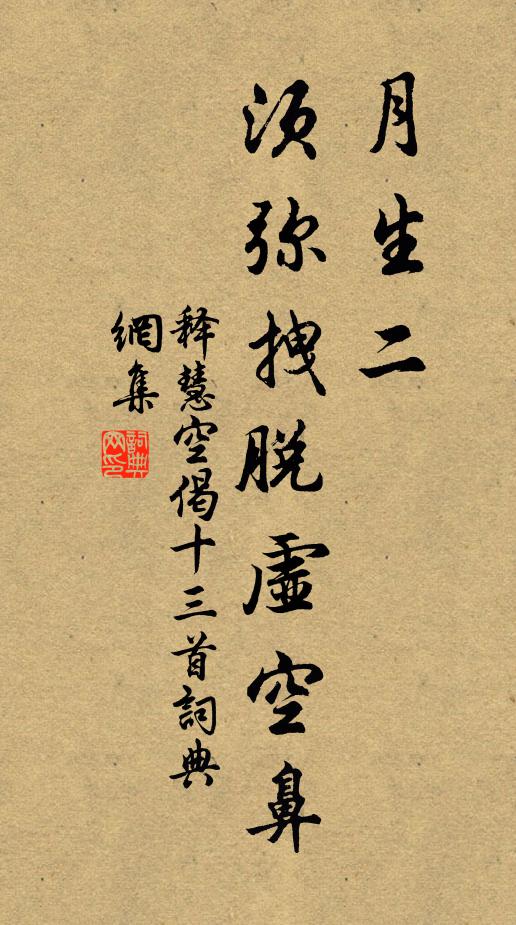 月生二
须弥拽脱虚空鼻
释慧空偈十三首詞典
網集
詞典网印